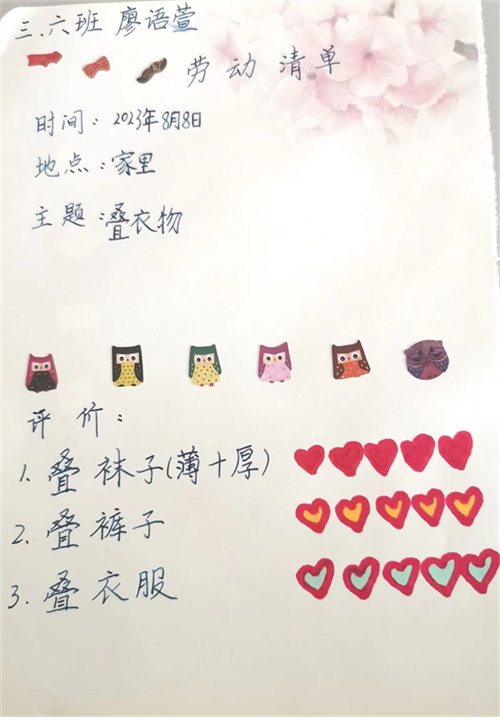 三.六班 廖语萱
劳动清单
时间：2023年8月8日
地点：家里
主题：叠衣物
评价：
1.叠袜子(薄+厚)
2.叠裤子
3.叠衣服